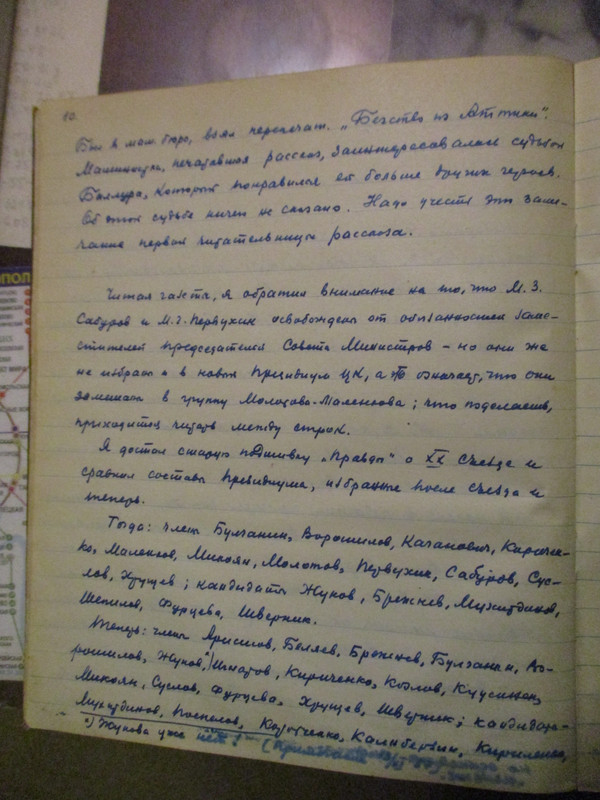 10.
Был в маш. бюро, взял перепечат. „Бегство из Аттики".
Машинистка, печатавшая рассказ, заинтересовалась судьбой
которой понравился ей больше других героев.
Об этой судьбе ничего не сказано. Надо учесть это заме-
чание первой читательницы рассказа.
Читая газеты, я обратил внимание на то, что М. З.
Сабуров и М. Г. Первухин освобождены от обязанностей заме-
стителей председателя Совета Министров – но они же
не избраны и в новый Президиум ЦК, а это означает, что они
замешаны в группу Молотова-Маленкова; что поделаешь,
приходится читать между строк.
Я достал старую подшивку „Правды" о XX съезде и
сравнил составы Президиума, избранные после съезда и
теперь.
Тогда: члены Булганин, Ворошилов, Каганович, Киричен-
ко, Маленков, Микоян, Молотов, Первухин, Сабуров, Сус-
лов, Хрущев; кандидаты Жуков, Брежнев, Мухитдинов,
Шепилов, Фурцева, Шверник.
Теперь: члены Аристов, Беляев, Брежнев, Булганин, Во-
рошилов, Жуков, Игнатов, Кириченко, Козлов, Куусинен,
Микоян, Суслов, Фурцева, Хрущев, Шверник; кандидаты –
Мухитдинов, Поспелов, Коротченко, Калнберзин, Кириленко,
Жукова уже нет!